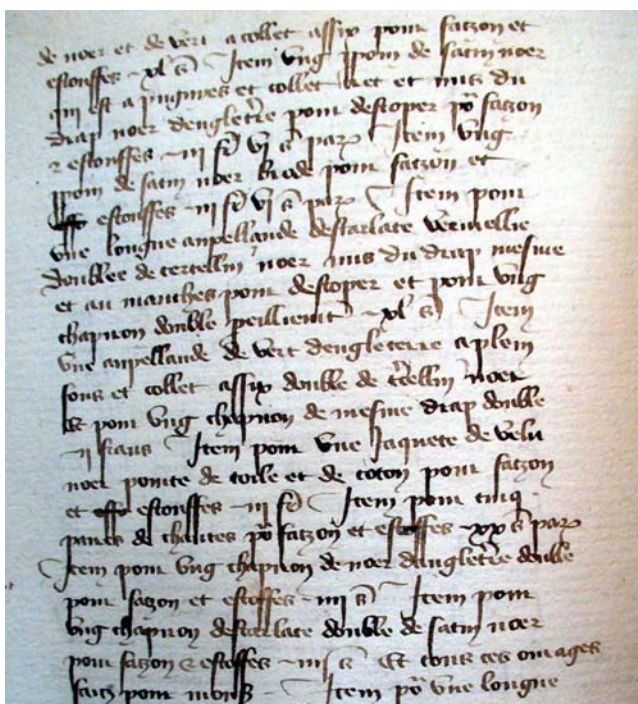 de noer et de vert a collet assix pour faczon et
estouffes - xl s Item ung ppoin de satin noer
qui est a pugnues et collet et mis du
drap noer dengleterre pour destoper po faczon
& estouffes - iii fr vi s par Item ung
ppoin de satin noer brode pour faczon et
estouffes - iii fr vi s par Item pour
une longue anpellande descarlate vermellie
doublee de tercellin noer mis du drap mesme
et au manches pour destoper et pour ung
chapiron double - xl s Item
une anpellande de vert dengleterre a plein
fons et collet assix double de tercellin noer
& pour ung chapiron de mesme drap double
- ii frans Item pour une Jaquete de velu
noer pointe de toile et de coton pour faczon
et estouffes - iii fr Item pour cinq
paires de chauces po faczon et estoffes - xx s par
Item pour ung chapiron de noer dengleterre double
pour fazon et estoffes - iiii s Item pour
ung chapiron descarlate double de satin noer
pour faczon & estoffes - iiii s Et tous ces ouvrages
faiz pour mons - Item po une longue